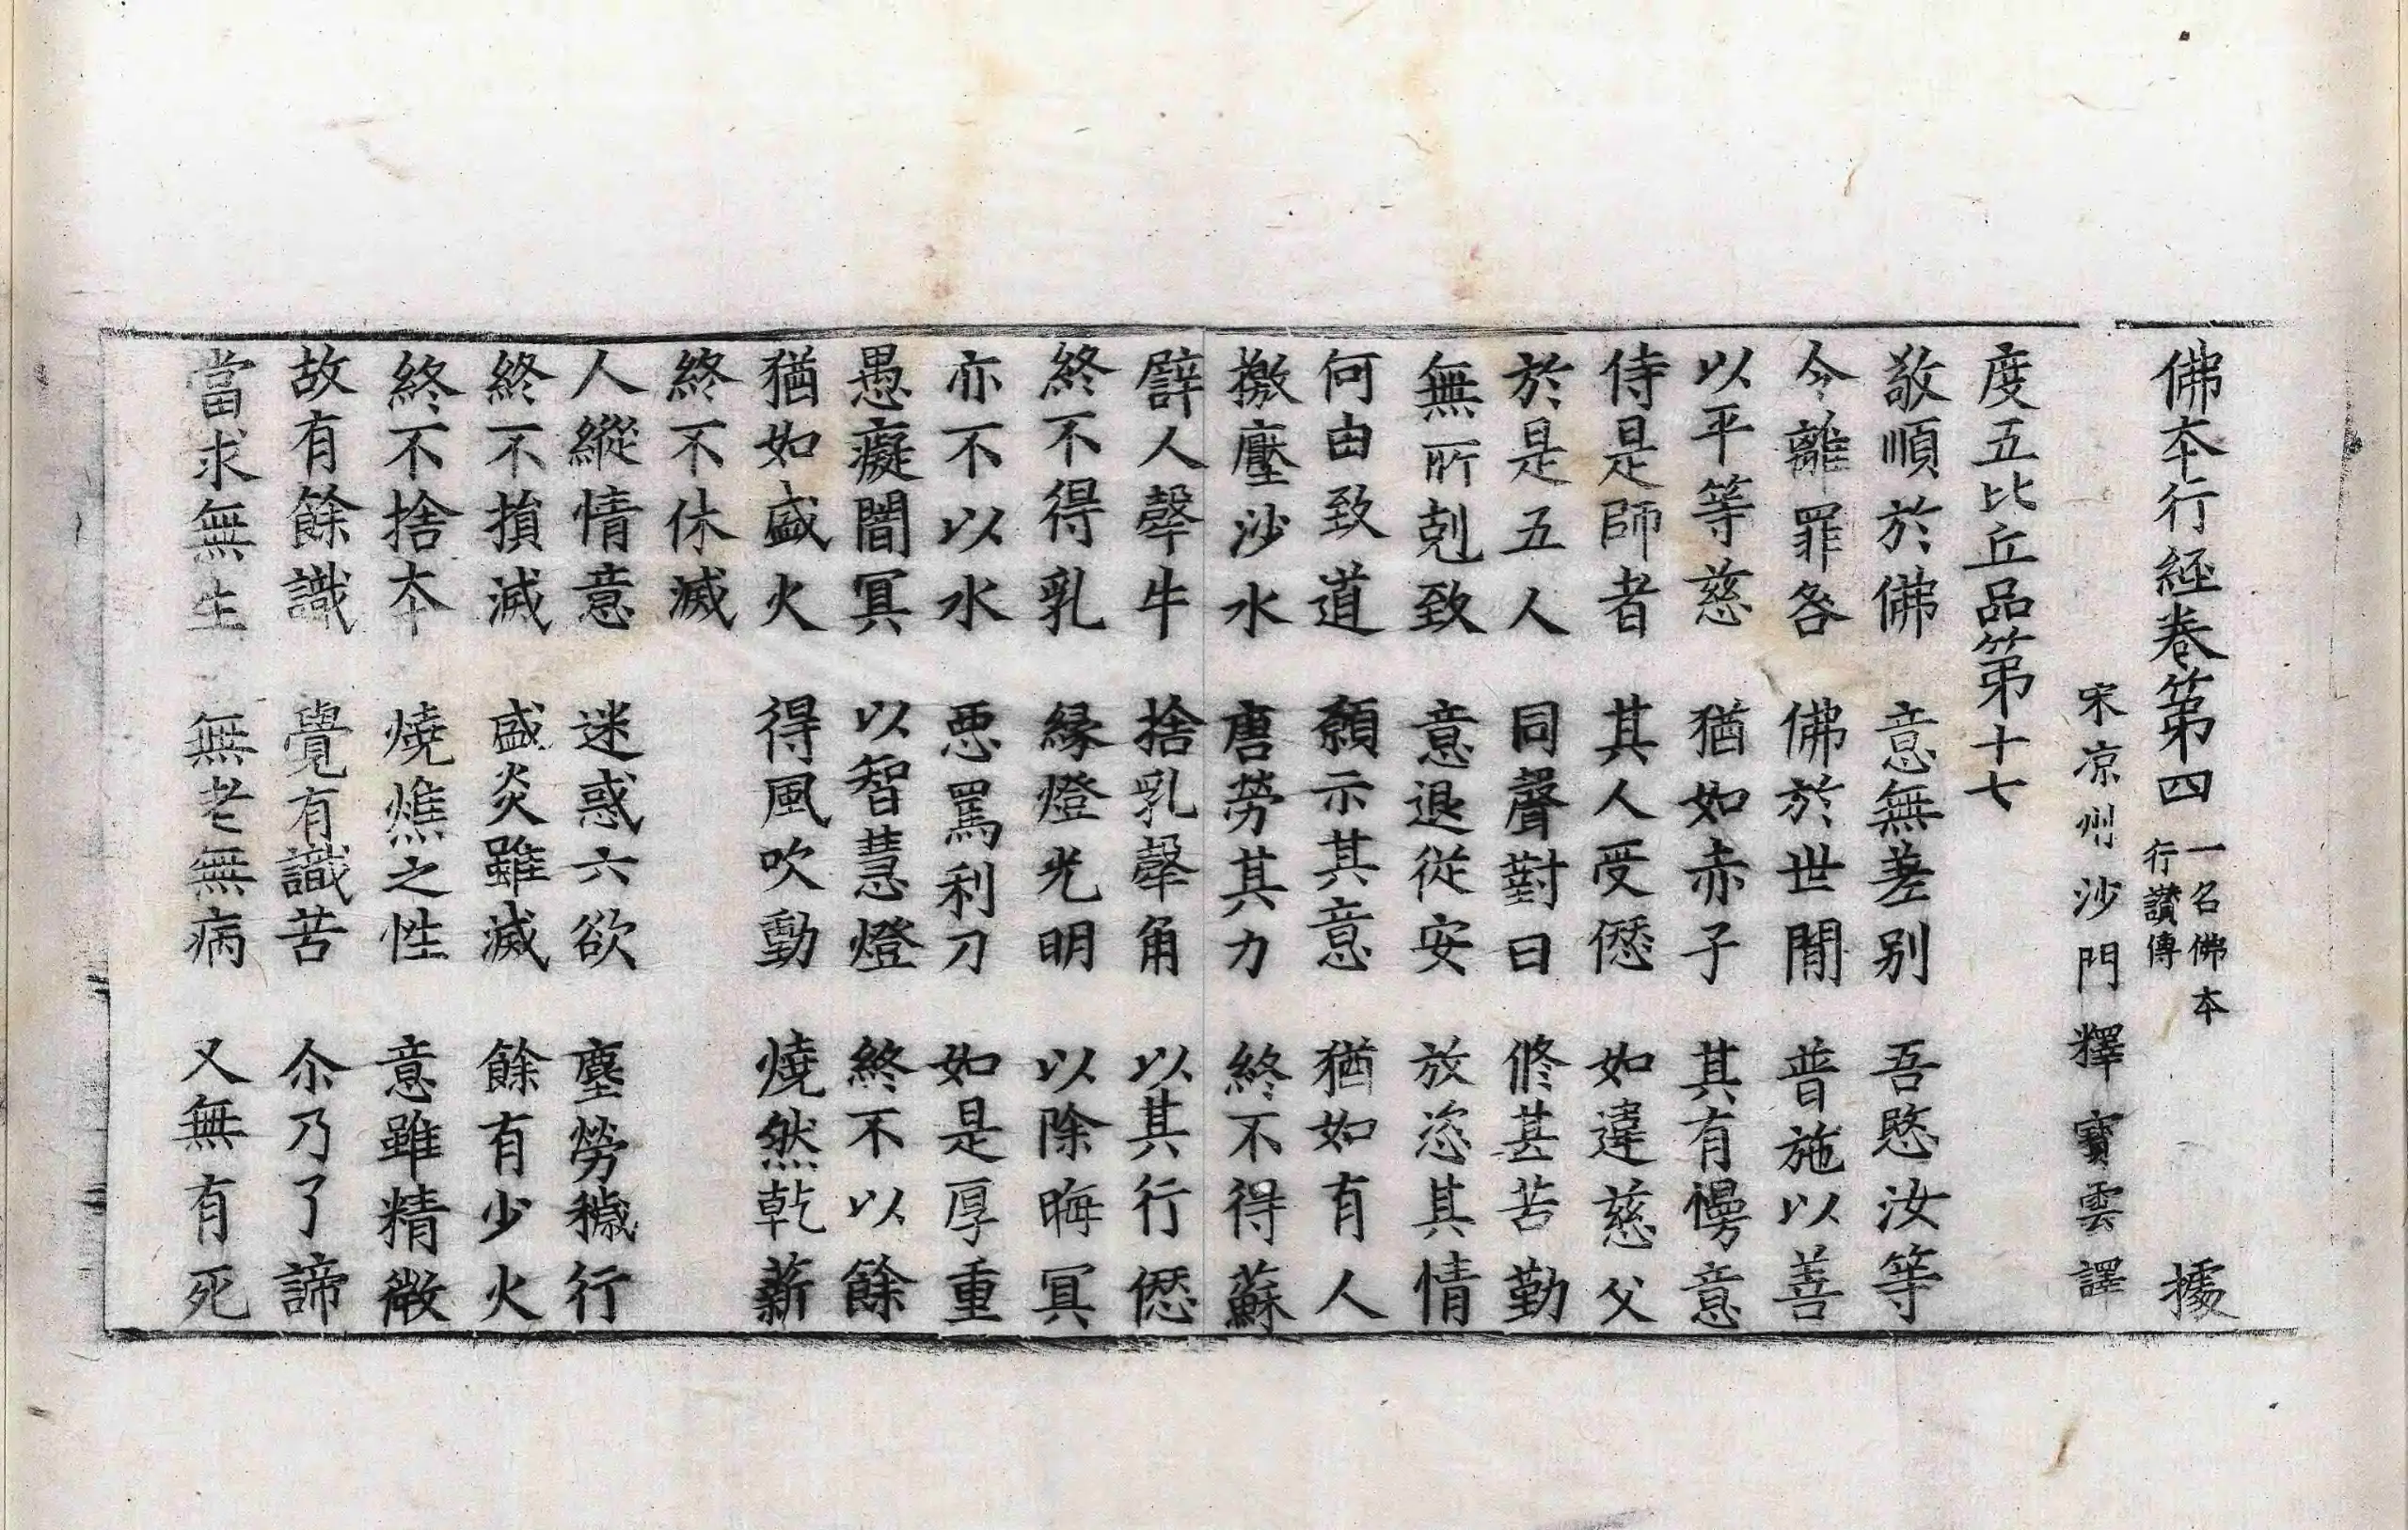 佛本行經卷第四 一名佛本行讚傳 據
宋涼州沙門釋寶雲譯
度五比丘品第十七
敬順於佛 意無差别 吾愍汝等
今離罪咎 佛於世閒 普施以善
以平等慈 猶如赤子 其有慢意
侍是師者 其人受𠎝 如違慈父
於是五人 同聲對曰 修甚苦勤
無所剋致 意退從安 放恣其情
何由致道 願示其意 猶如有人
撽壓沙水 唐勞其力 終不得蘇
譬人𤛗牛 捨乳𤛗角 以其行𠎝
終不得乳 縁燈光明 以除晦冥
亦不以水 惡罵利刀 如是厚重
愚癡闇冥 以智慧燈 終不以餘
猶如盛火 得風吹動 燒然乾薪
終不休滅
人縱情意 迷惑六欲 塵勞穢行
終不損滅 盛炎雖滅 餘有少火
終不捨本 燒燋之性 意雖精微
故有餘識 覺有識苦 尒乃了諦
當求無生 無老無病 又無有死